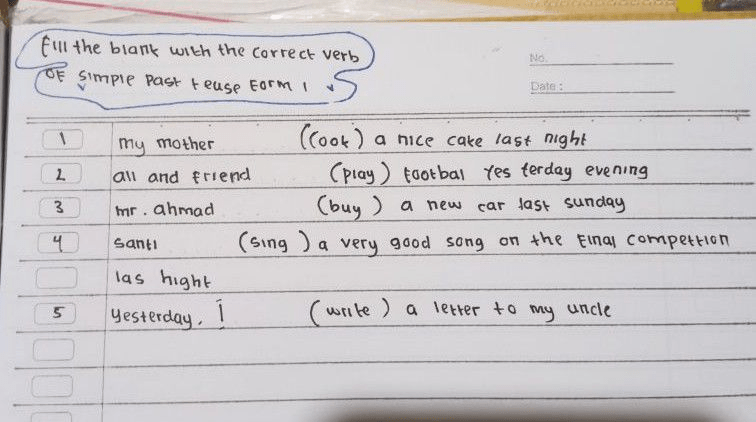 Fill the blank with the correct verb
OF simple Past teuse Form 1
No.
Date :
1 my mother (Cook) a nice cake last night
2 all and friend (play) footbal Yes terday evening
3 mr. ahmad (buy) a new car last sunday
4 santi (sing) a very good song on the final compettion
las hight
5 yesterday, I (write) a letter to my uncle